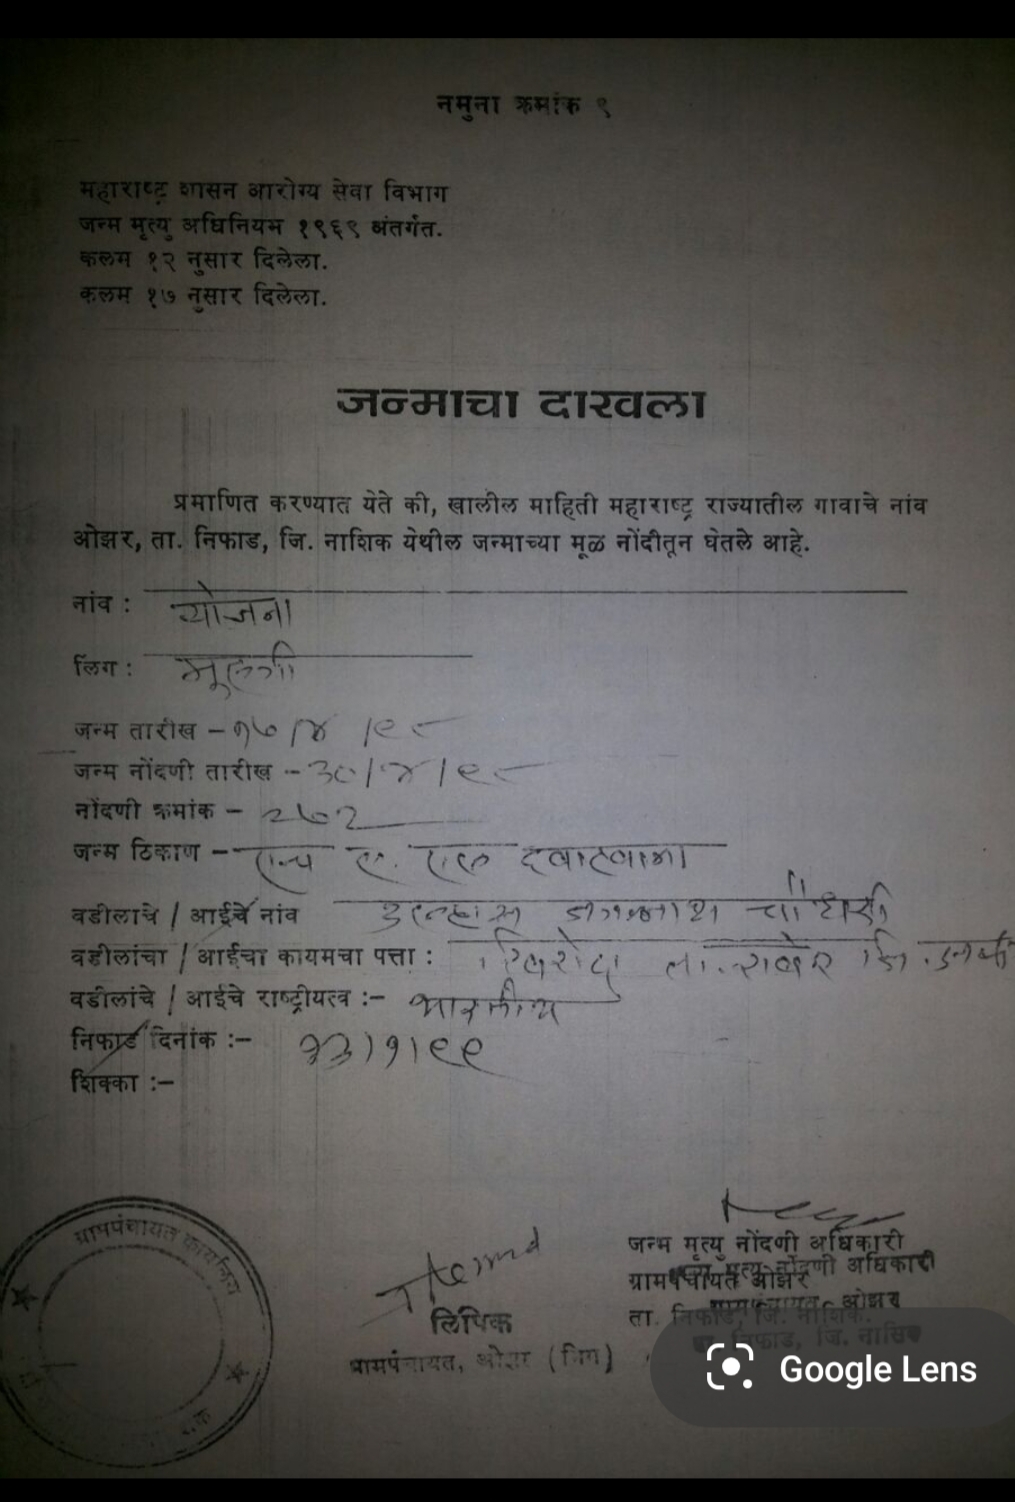 नमुना क्रमांक ९
महाराष्ट्र शासन आरोग्य सेवा विभाग
जन्म मृत्यु अधिनियम १९६९ अंतर्गत.
कलम १२ नुसार दिलेला.
कलम १७ नुसार दिलेला.
जन्माचा दाखला
प्रमाणित करण्यात येते की, खालील माहिती महाराष्ट्र राज्यातील गावाचे नांव
ओझर, ता. निफाड, जि. नाशिक येथील जन्माच्या मूळ नोंदीतून घेतले आहे.
नांव : योजना
लिंग : मुलगी
जन्म तारीख – १७/४/९८
जन्म नोंदणी तारीख – ३०/४/९८
नोंदणी क्रमांक – २७२
जन्म ठिकाण – एच ए. एल दवाखाना
वडीलाचे / आईचे नांव उल्हास जगन्नाथ चौधरी
वडीलांचा / आईचा कायमचा पत्ता : खिरोदा ता. रावेर जि.
वडीलांचे / आईचे राष्ट्रीयत्व :– भारतीय
निफाड दिनांक :– १३/१/९९
शिक्का :–
ग्रामपंचायत कार्यालय
जन्म मृत्यु नोंदणी अधिकारी
जन्म मृत्यु नोंदणी अधिकारी
ग्रामपंचायत ओझर
ग्रामपंचायत ओझर
लिपिक
ता. निफाड, जि. नाशिक.
ता. निफाड, जि. नासिक
ग्रामपंचायत, ओझर (मिग)
Google Lens